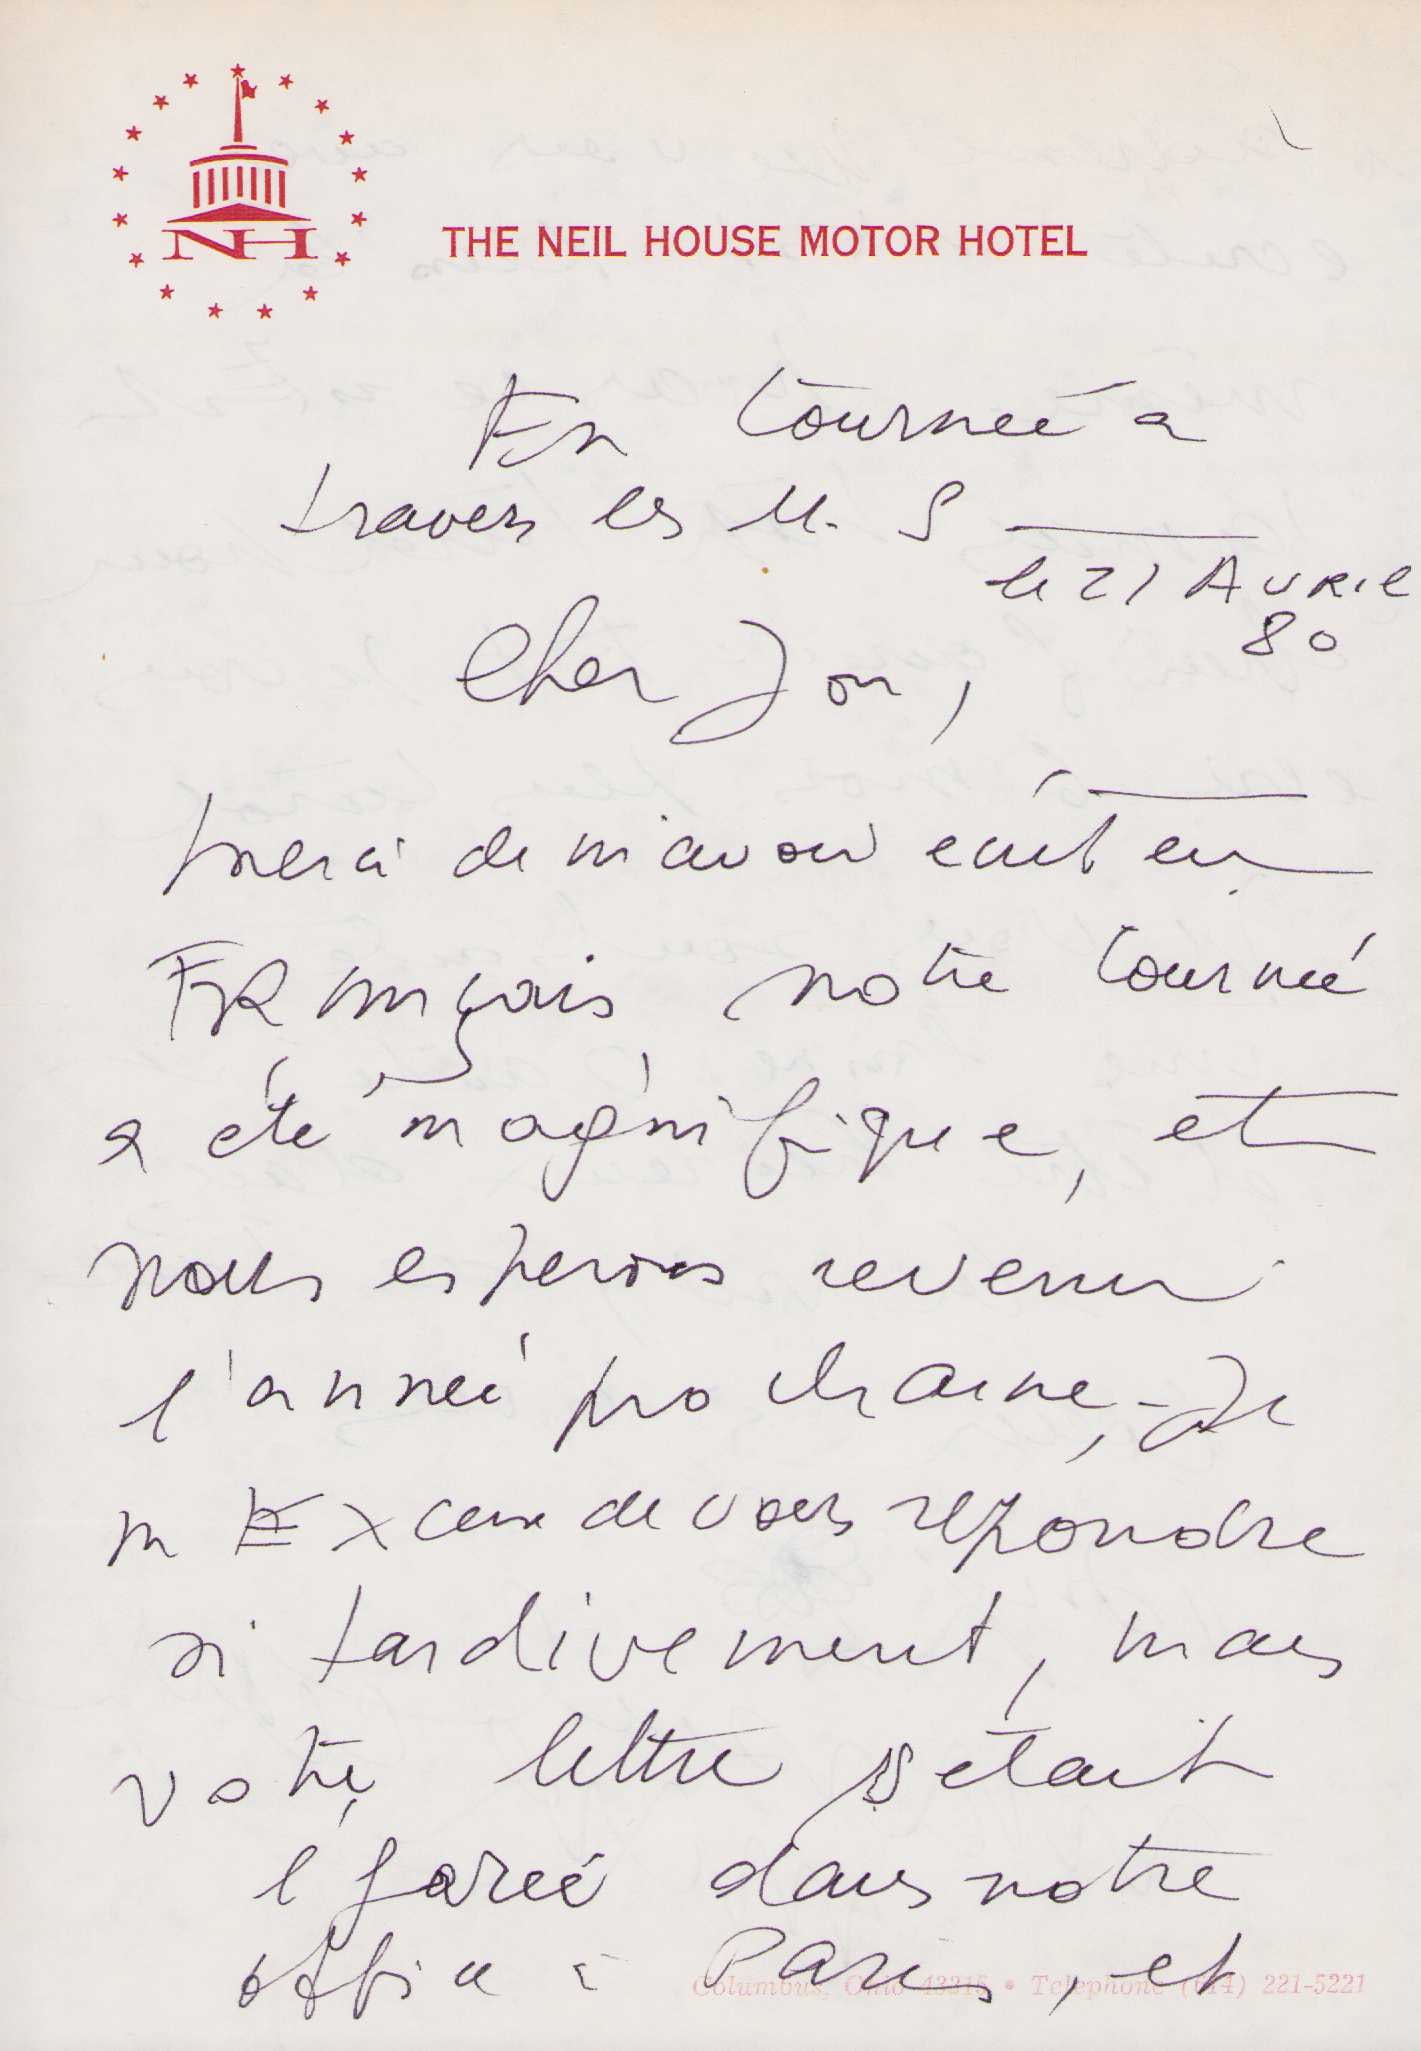 NH
THE NEIL HOUSE MOTOR HOTEL
En tournée a
travers les U. S
le 21 AVRIL
80
Cher Jon,
merci de m'avoir écrit en
FRançais, notre tournée
a été magnifique, et
nous esperons revenir
l'année prochaine, - Je
m Excuse de vous répondre
si tardivement, mais
votre lettre s'etait
egarée dans notre
office à Paris, et
Columbus, Ohio 43215 • Telephone (614) 221-5221